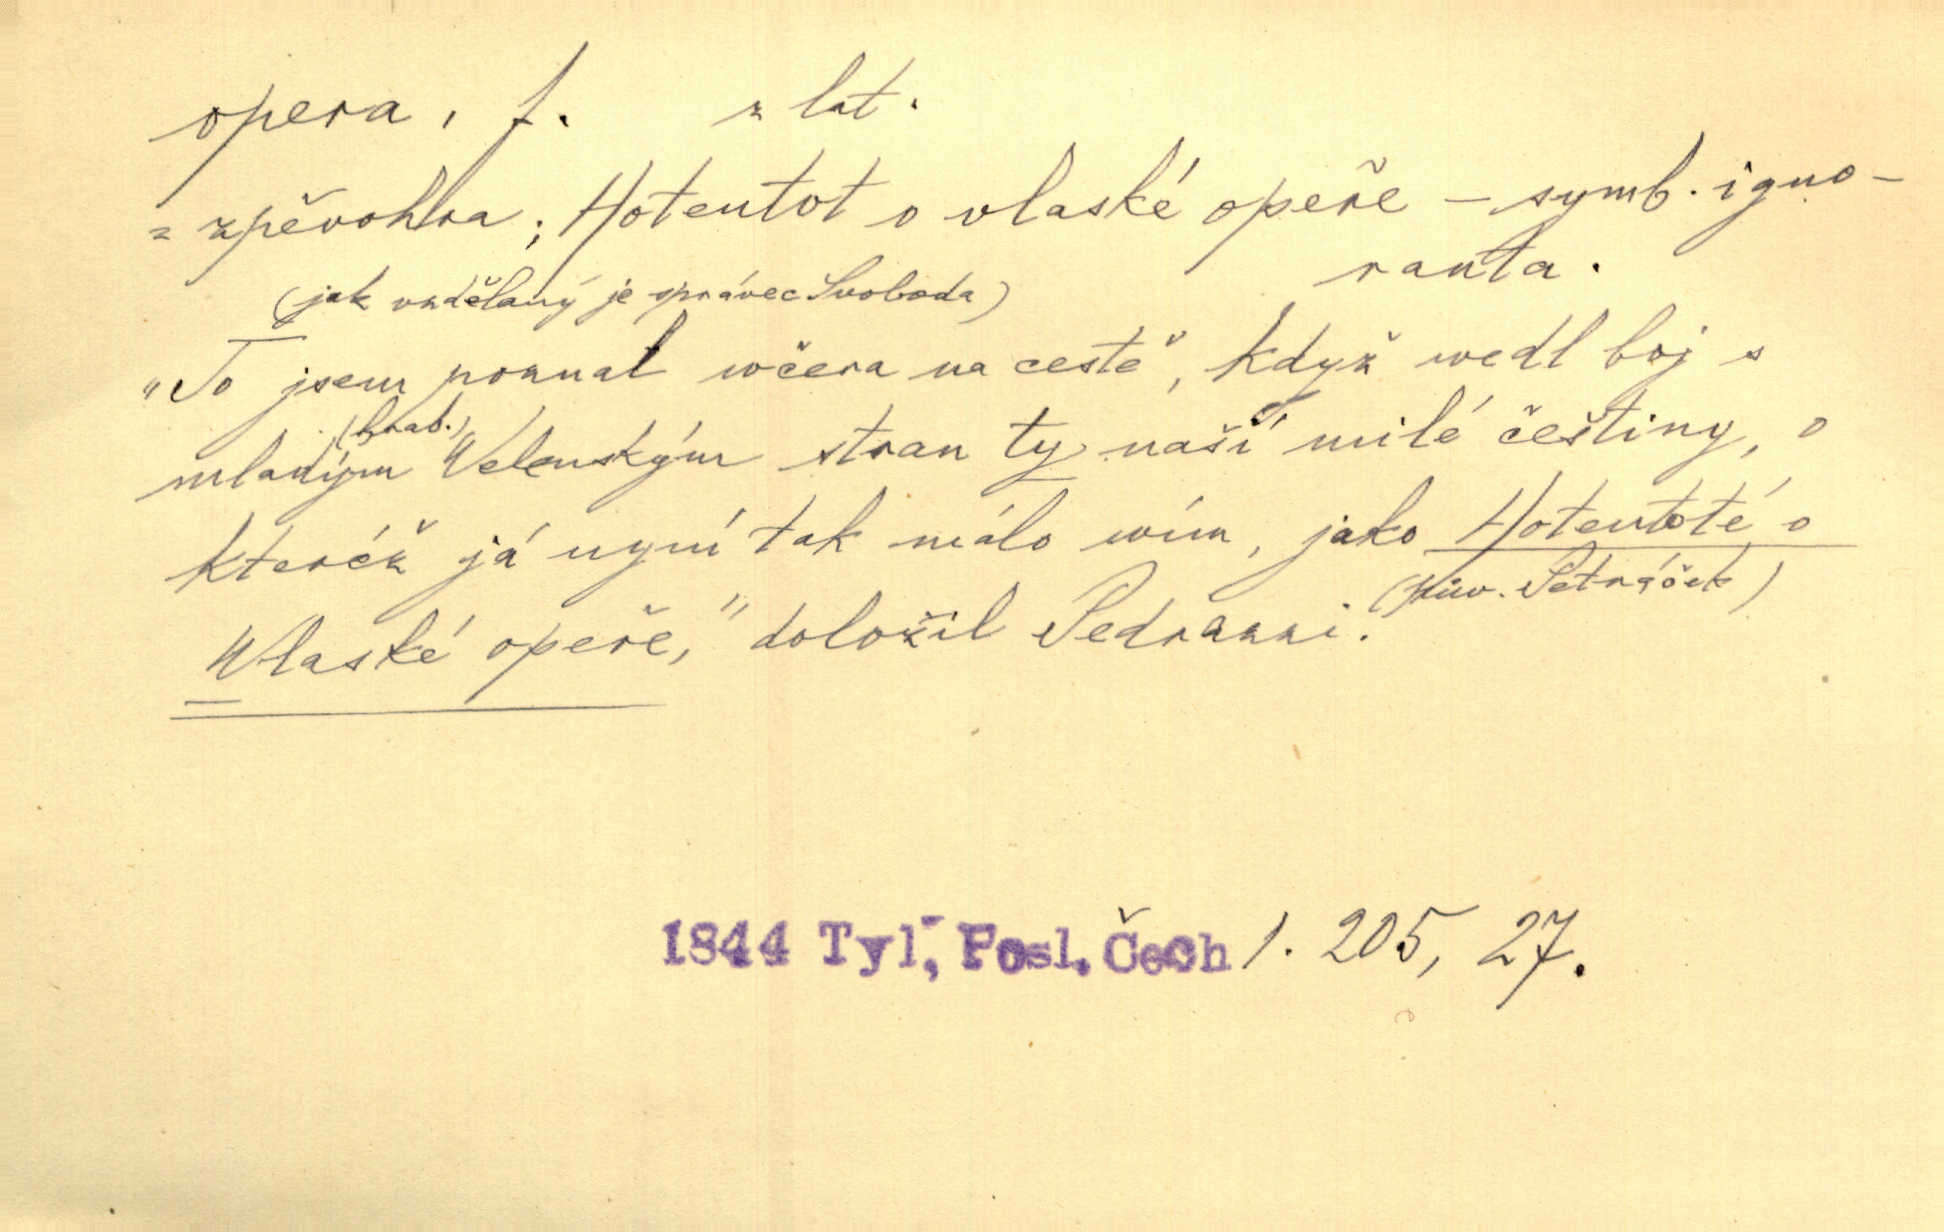 opera, f. z lat.
= zpěvohra; Hotentot o vlaské opeře – symb. igno-
ranta.
(jak vzdělaný je správec Svoboda)
„To jsem poznal wčera na cestě", když wedl boj s
(hrab.)
mladým Welenským stran ty naší milé češtiny, o
kteréž já nyní tak málo wím, jako Hotentoté o
(pův. Petráček)
Wlaské opeře," doložil Pedrazzi.
1844 Tyl, Posl. Čech 1. 205, 27.